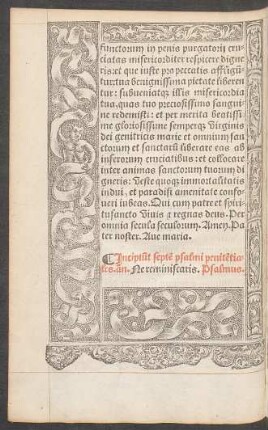 functorum in penis purgatorij cru
ciatas misericorditer respicere digne
ris: et que iuste pro peccatis affligūt̄
tur: tua benignissima pietate liberen
tur: subueniatq; illis misericordia
tua, quas tuo preciosissimo sangui
ne redemisti: et per merita beatissi
me gloriosissime semperq; virginis
dei genitricis marie et omnium san
ctorum et sanctarū liberare eas ab
inferorum cruciatibus: et collocare
inter animas sanctorum tuorum di
gneris: Veste quoq; immortalitatis
indui: et paradisi amenitate confo
ueri iubeas. Qui cum patre et spiri
tusancto Viuis et regnas deus. Per
omnia secula seculorum. Amen. Pa
ter noster. Aue maria.
Incipiūt septē psalmi penitētia
les. an. Ne reminiscaris. Psalmus.